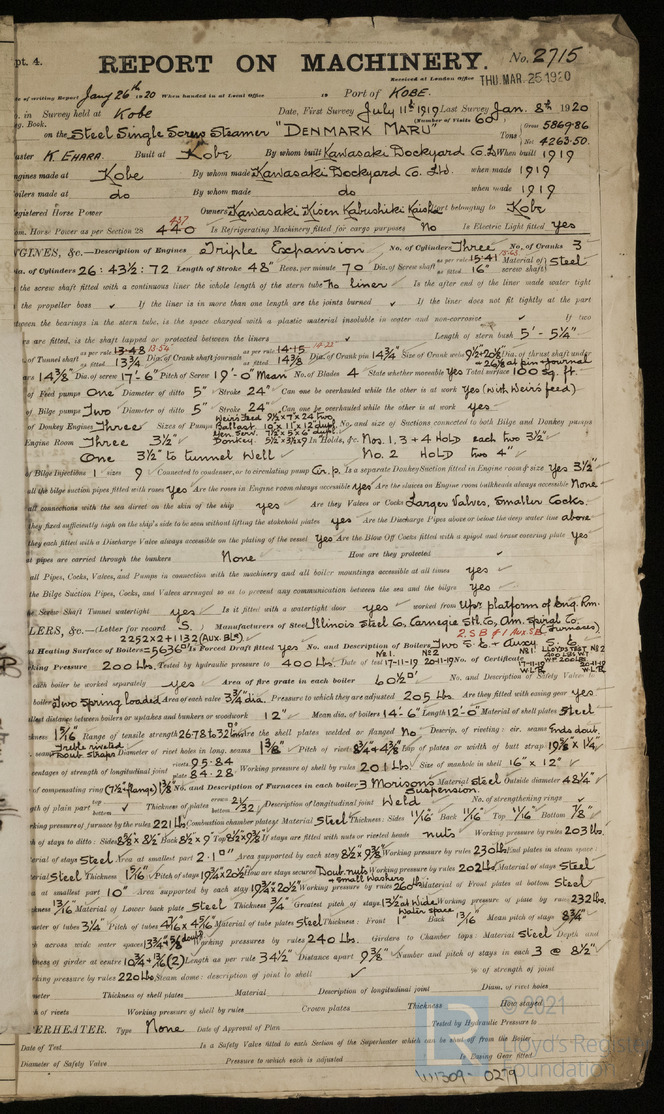 pt. 4.
REPORT ON MACHINERY. No. 2715
Received at London Office THU. MAR. 25 1920
of writing Report Jany 26th 1920 When handed in at Local Office 19 Port of KOBE.
in Survey held at Kobe Date, First Survey July 11th 1919 Last Survey Jan. 8th 1920
Book. (Number of Visits 60)
on the Steel Single Screw Steamer "DENMARK MARU" Tons Gross 5869.86 Net 4263.50
aster K. EHARA. Built at Kobe By whom built Kawasaki Dockyard Co. Ld When built 1919
ngines made at Kobe By whom made Kawasaki Dockyard Co. Ltd. when made 1919
oilers made at do By whom made do when made 1919
egistered Horse Power Owners Kawasaki Kisen Kabushiki Kaisha Port belonging to Kobe
om. Horse Power as per Section 28 440 437 Is Refrigerating Machinery fitted for cargo purposes No Is Electric Light fitted yes
NGINES, &c.—Description of Engines Triple Expansion No. of Cylinders Three No. of Cranks 3
ia. of Cylinders 26 : 43½ : 72 Length of Stroke 48" Revs. per minute 70 Dia. of Screw shaft as per rule 15.41 as fitted 16" Material of screw shaft Steel
the screw shaft fitted with a continuous liner the whole length of the stern tube No liner Is the after end of the liner made water tight
the propeller boss If the liner is in more than one length are the joints burned If the liner does not fit tightly at the part
between the bearings in the stern tube, is the space charged with a plastic material insoluble in water and non-corrosive If two
rs are fitted, is the shaft lapped or protected between the liners Length of stern bush 5'-5¼"
of Tunnel shaft as per rule 13.48 as fitted 13¾ Dia. of Crank shaft journals as per rule 14.15 as fitted 14⅜ Dia. of Crank pin 14¾" Size of Crank webs 9½ × 20⅛ Dia. of thrust shaft under
ars 14⅜" Dia. of screw 17'-6" Pitch of Screw 19'-0" Mean No. of Blades 4 State whether moveable yes Total surface 100 sq. ft.
of Feed pumps One Diameter of ditto 5" Stroke 24" Can one be overhauled while the other is at work yes (with Weir's feed)
of Bilge pumps Two Diameter of ditto 5" Stroke 24" Can one be overhauled while the other is at work yes
of Donkey Engines Three Sizes of Pumps Weir's Feed 9½ × 7 × 24 two Ballast 10 × 11 × 12 dupl. Gen. Serv. 7½ × 5 × 6 dupl. Donkey 5½ × 3½ × 9 No. and size of Suctions connected to both Bilge and Donkey pumps
Engine Room Three 3½" In Holds, &c. Nos. 1. 3 + 4 HOLD each two 3½"
One 3½" to tunnel well No. 2 HOLD two 4"
of Bilge Injections 1 sizes 9 Connected to condenser, or to circulating pump Cir. p. Is a separate Donkey Suction fitted in Engine room & size Yes 3½"
all the bilge suction pipes fitted with roses Yes Are the roses in Engine room always accessible yes Are the sluices on Engine room bulkheads always accessible None
all connections with the sea direct on the skin of the ship yes Are they Valves or Cocks Larger Valves, Smaller Cocks.
they fixed sufficiently high on the ship's side to be seen without lifting the stokehold plates yes Are the Discharge Pipes above or below the deep water line above
they each fitted with a Discharge Valve always accessible on the plating of the vessel yes Are the Blow Off Cocks fitted with a spigot and brass covering plate yes
at pipes are carried through the bunkers None How are they protected
all Pipes, Cocks, Valves, and Pumps in connection with the machinery and all boiler mountings accessible at all times yes
the Bilge Suction Pipes, Cocks, and Valves arranged so as to prevent any communication between the sea and the bilges yes
he Screw Shaft Tunnel watertight yes Is it fitted with a watertight door yes worked from Upr. platform of Eng. Rm.
LERS, &c.—(Letter for record S.) Manufacturers of Steel Illinois Steel Co, Carnegie Stl. Co, Am. Spiral Co. (Furnaces)
2252×2+1132 (AUX. BLR) 2. S B & 1 Aux. S B
al Heating Surface of Boilers =5636□' Is Forced Draft fitted yes No. and Description of Boilers Two S. E. + Auxy S. E.
king Pressure 200 Lbs. Tested by hydraulic pressure to 400 Lbs. Date of test No 1. 17-11-19 No 2 20-11-19 No. of Certificate
each boiler be worked separately yes Area of fire grate in each boiler 60½□' No. and Description of Safety Valves to
boiler Two Spring loaded Area of each valve 3¾" dia. Pressure to which they are adjusted 205 Lbs Are they fitted with easing gear yes
llest distance between boilers or uptakes and bunkers or woodwork 12" Mean dia. of boilers 14'-6" Length 12'-0" Material of shell plates Steel
kness 1 5/16 Range of tensile strength 26.78 to 32 Are the shell plates welded or flanged No Descrip. of riveting : cir. seams Ends doub.
seams Treble riveted Doub. Straps Diameter of rivet holes in long. seams 1⅜" Pitch of rivets Lap of plates or width of butt strap 19⅝" × 1¼"
centages of strength of longitudinal joint rivets 95.84 plate 84.28 Working pressure of shell by rules 201 Lbs. Size of manhole in shell 16" × 12"
of compensating ring (7½ flange) 1⅜ No. and Description of Furnaces in each boiler 3 Morison's Suspension. Material Steel Outside diameter 48¼"
gth of plain part top bottom Thickness of plates crown bottom Description of longitudinal joint Weld No. of strengthening rings
rking pressure of furnace by the rules 221 Lbs Combustion chamber plates: Material Steel Thickness: Sides 11/16 Back 11/16 Top 11/16 Bottom ⅞"
h of stays to ditto: Sides 8⅝ × 8½ Back 8½ × 9 Top 8½ × 9⅜ If stays are fitted with nuts or riveted heads nuts Working pressure by rules 203 lbs.
erial of stays Steel Area at smallest part 2.1□" Area supported by each stay 8½ × 9⅜ Working pressure by rules 230 lbs End plates in steam space:
terial Steel Thickness 1 5/16 Pitch of stays 19¾ × 20½ How are stays secured Doub. nuts + small Washers Working pressure by rules 202 lbs. Material of stays Steel
ea at smallest part 10" Area supported by each stay 19¾ × 20½ Working pressure by rules 260 lbs Material of Front plates at bottom Steel
kness 13/16 Material of Lower back plate Steel Thickness ¾" Greatest pitch of stays 13½ at Wide water space Working pressure of plate by rules 232 lbs.
meter of tubes 3¼" Pitch of tubes 4⅞ × 4 5/16 Material of tube plates Steel Thickness: Front 1" Back 13/16 Mean pitch of stays 8¾"
h across wide water spaces Working pressures by rules 240 Lbs. Girders to Chamber tops: Material Steel Depth and
kness of girder at centre 10¾ + 13/16 (2) Length as per rule 34½" Distance apart 9⅜" Number and pitch of stays in each 3 @ 8½"
rking pressure by rules 220 lbs Steam dome: description of joint to shell % of strength of joint
meter Thickness of shell plates Material Description of longitudinal joint Diam. of rivet holes
h of rivets Working pressure of shell by rules Crown plates Thickness How stayed
ERHEATER. Type None Date of Approval of Plan Tested by Hydraulic Pressure to
Date of Test Is a Safety Valve fitted to each Section of the Superheater which can be shut off from the Boiler
Diameter of Safety Valve Pressure to which each is adjusted Is Easing Gear fitted
© 2021
Lloyd's Register
Foundation
LR
1111309-0279